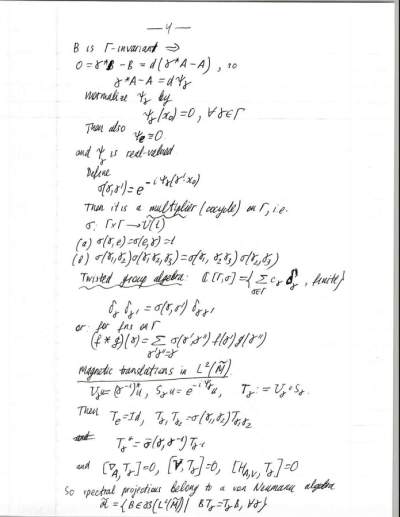 — 4 —
B is Γ-invariant ⇒
0 = γ*B − B = d(γ*A − A), so
γ*A − A = dψ_γ
Normalize ψ_γ by
ψ_γ(x₀) = 0, ∀γ∈Γ
Then also ψ_e ≡ 0
and ψ_γ is real-valued
Define
σ(γ,γ') = e^{−iψ_γ(γ'·x₀)}
Then it is a multiplier (cocycle) on Γ, i.e.
σ: Γ×Γ → U(1)
(a) σ(γ,e) = σ(e,γ) = 1
(b) σ(γ₁,γ₂)σ(γ₁γ₂,γ₃) = σ(γ₁,γ₂γ₃)σ(γ₂,γ₃)
Twisted group algebra: ℂ[Γ,σ] = {Σ_{γ∈Γ} c_γ δ_γ, finite}
δ_γ δ_γ' = σ(γ,γ') δ_γγ'
or: for fns on Γ
(f * g)(γ) = Σ_{γ'γ''=γ} σ(γ',γ'') f(γ') g(γ'')
Magnetic translations in L²(M̃)
U_γ u = (γ⁻¹)*u, S_γ u = e^{−iψ_γ}u, T_γ := U_γ∘S_γ
Then T_e = Id, T_γ₁ T_γ₂ = σ(γ₁,γ₂)T_γ₁γ₂
T_γ* = σ̄(γ,γ⁻¹)T_γ⁻¹
and [∇_A,T_γ]=0, [V,T_γ]=0, [H_{A,V},T_γ]=0
So spectral projections belong to a von Neumann algebra
= {B∈B(L²(M̃)) | BT_γ = T_γB, ∀γ}